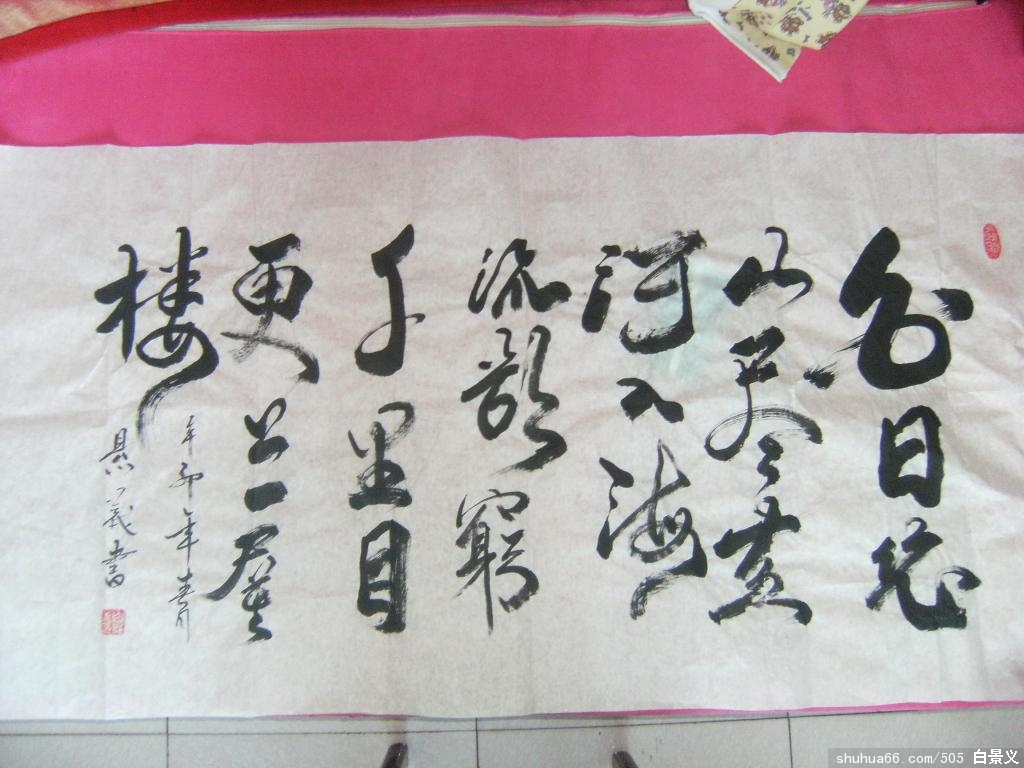 白日依
山尽黄
河入海
流欲窮
千里目
更上一層
樓
辛卯年春月
景義書
shuhua66.com/505 白景义